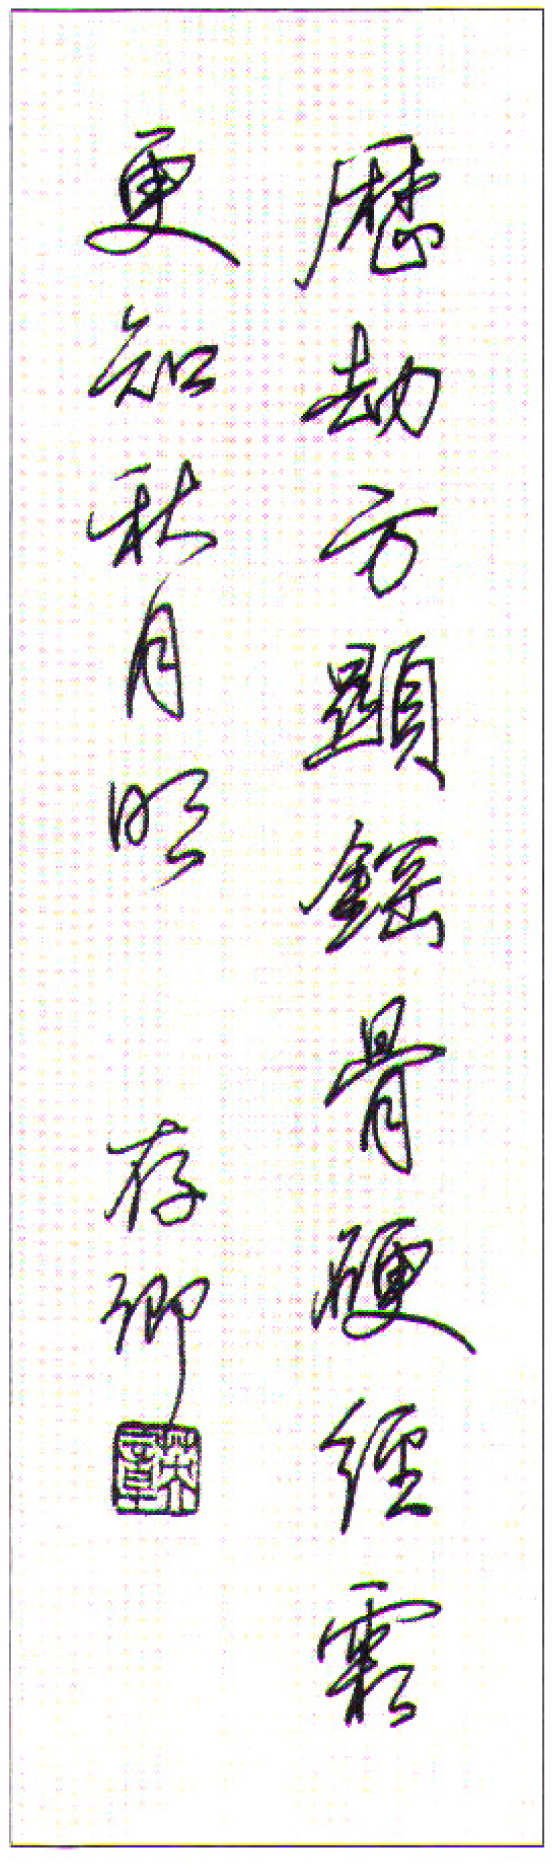 歷劫方顯鋼骨硬經霜
更知秋月明 存卿